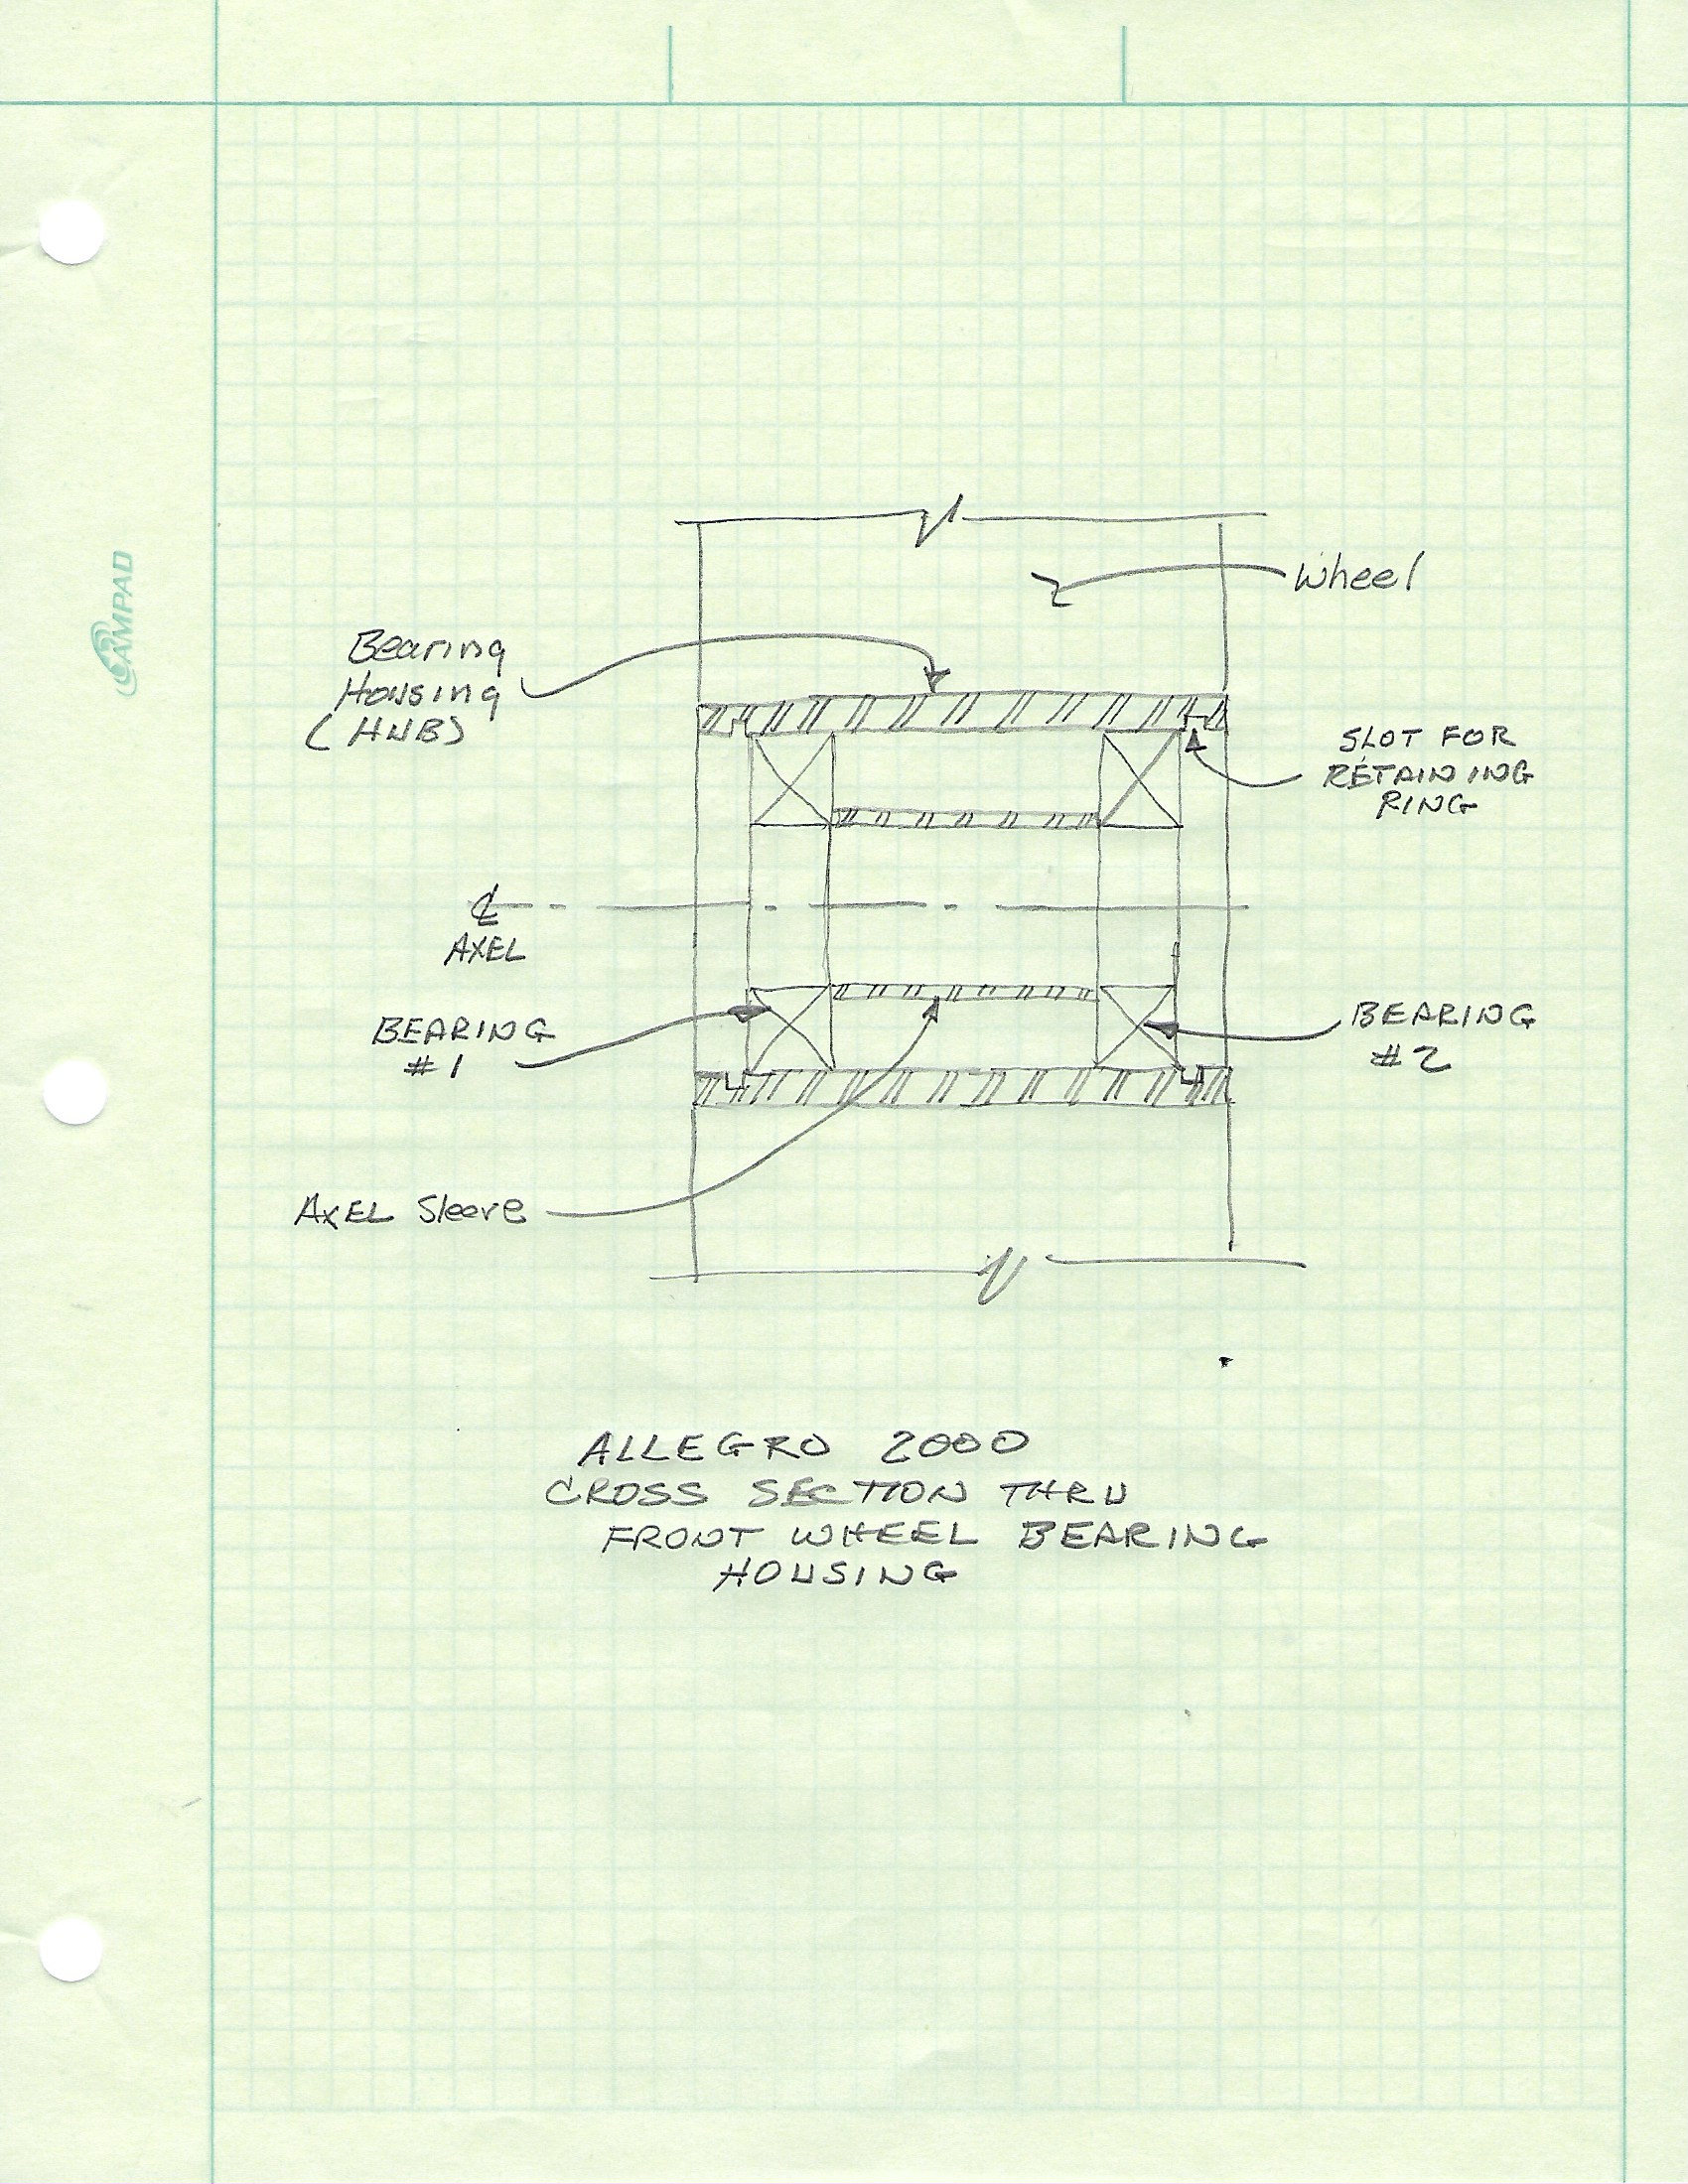 Wheel
Bearing
Housing
(HUB)
SLOT FOR
RETAINING
RING
℄
AXEL
BEARING
#1
BEARING
#2
AXEL Sleeve
ALLEGRO 2000
CROSS SECTION THRU
FRONT WHEEL BEARING
HOUSING
AMPAD